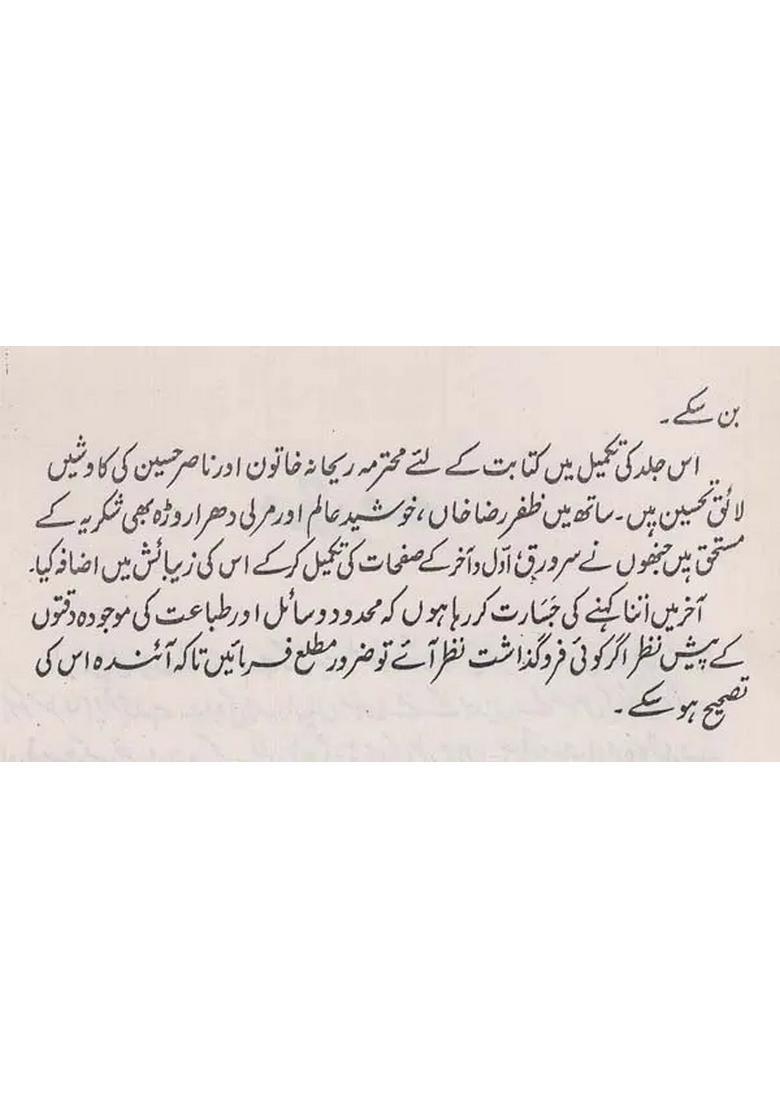 بن سکے۔
اس جلد کی تکمیل میں کتابت کے لئے محترمہ ریحانہ خاتون اور ناصر حسین کی کاوشیں
لائق تحسین ہیں۔ ساتھ میں ظفر رضا خاں، خوشید عالم اور مرلی دھر اروڑہ بھی شکریہ کے
مستحق ہیں جنھوں نے سرورق، اوّل و آخر کے صفحات کی تکمیل کر کے اس کی زیبائش میں اضافہ کیا۔
آخر میں اتنا کہنے کی جَسَارت کر رہا ہوں کہ محدود وسائل اور طباعت کی موجودہ دقتوں
کے پیش نظر اگر کوئی فروگذاشت نظر آئے تو ضرور مطلع فرمائیں تاکہ آئندہ اس کی
تصحیح ہو سکے۔